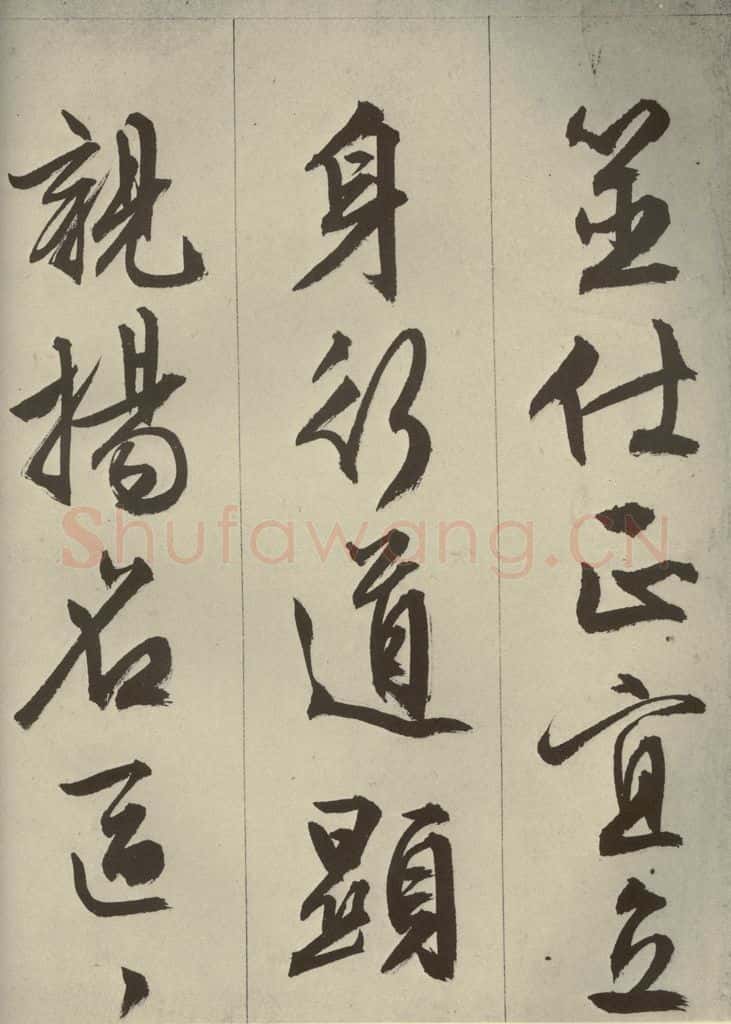 筮仕正宜立
身行道顯
親揚名區、
Shufawang.CN